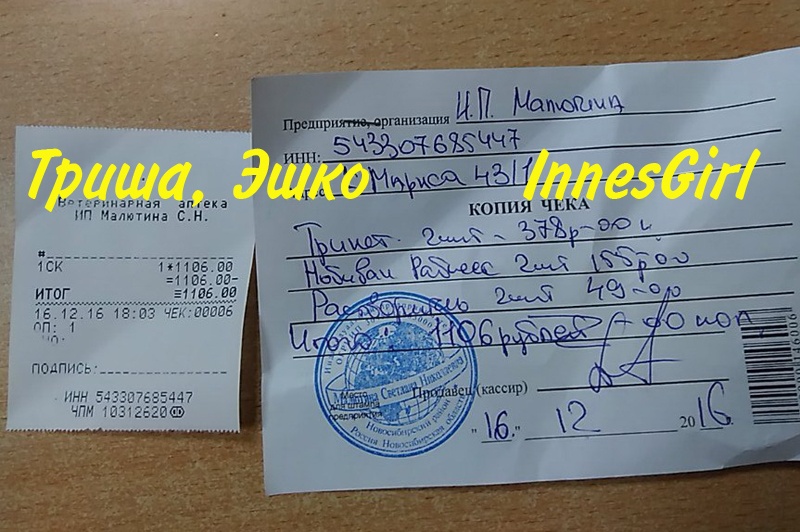 Триша, Эшко
InnesGirl
Ветеринарная аптека
ИП Малютина С.Н.
#
1СК 1*1106.00
=1106.00-
ИТОГ ≡1106.00
16.12.16 18:03 ЧЕК:00006
ОП: 1
ПОДПИСЬ:
ИНН 543307685447
ЧПМ 10312620
Предприятие, организация И.П. Малютина
ИНН: 543307685447
Маркса 43/1
КОПИЯ ЧЕКА
2шт - 378р-00к
Нобиван 2шт 155р00
Растворитель 2шт 49-00
Итого: 1106 рублей - 00 коп.
Продавец (кассир)
Место для штампа предприятия
Светлана Николаевна
Новосибирский район
Россия Новосибирская область
"16." 12 2016